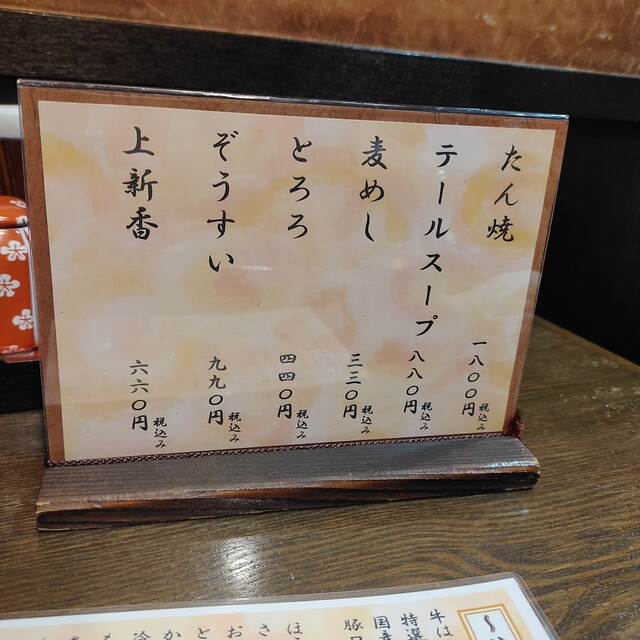 たん焼 一八〇〇円 税込み
テールスープ 八八〇円 税込み
麦めし 三三〇円 税込み
とろろ 四四〇円 税込み
ぞうすい 九九〇円 税込み
上新香 六六〇円 税込み
牛は
特選
国産
豚